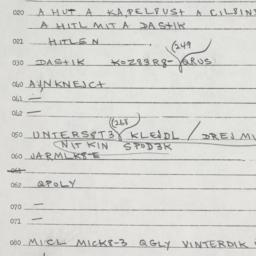 020 A HUT A KAPELPUST A CILBIN
A HITL MIT A DASTIK
021 HITLEN
(249
030 DASTIK KOZ83R8- QRUS
040 AJNKNEJCT
061 —
062 —
(268
050 UNTERS8T3 KLEJDL / DREJ MI
NIT KIN SPOD3K
060 JARMLK8E
061
062 QPOLY
070 —
071 —
080 MICL MICK8-3 QGLY VINTERDIK